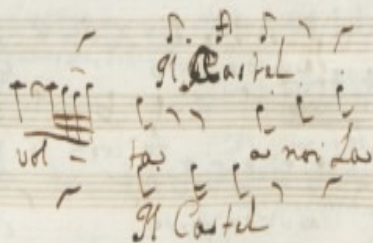 Il Castel
vol - ta a noi La
Il Castel